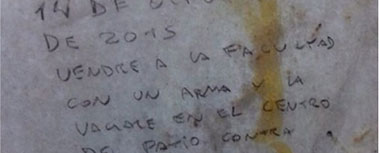 14 DE
DE 2015
VENDRE A LA FACULTAD
CON UN ARMA Y LA
EN EL CENTRO
DE PATIO CONTRA